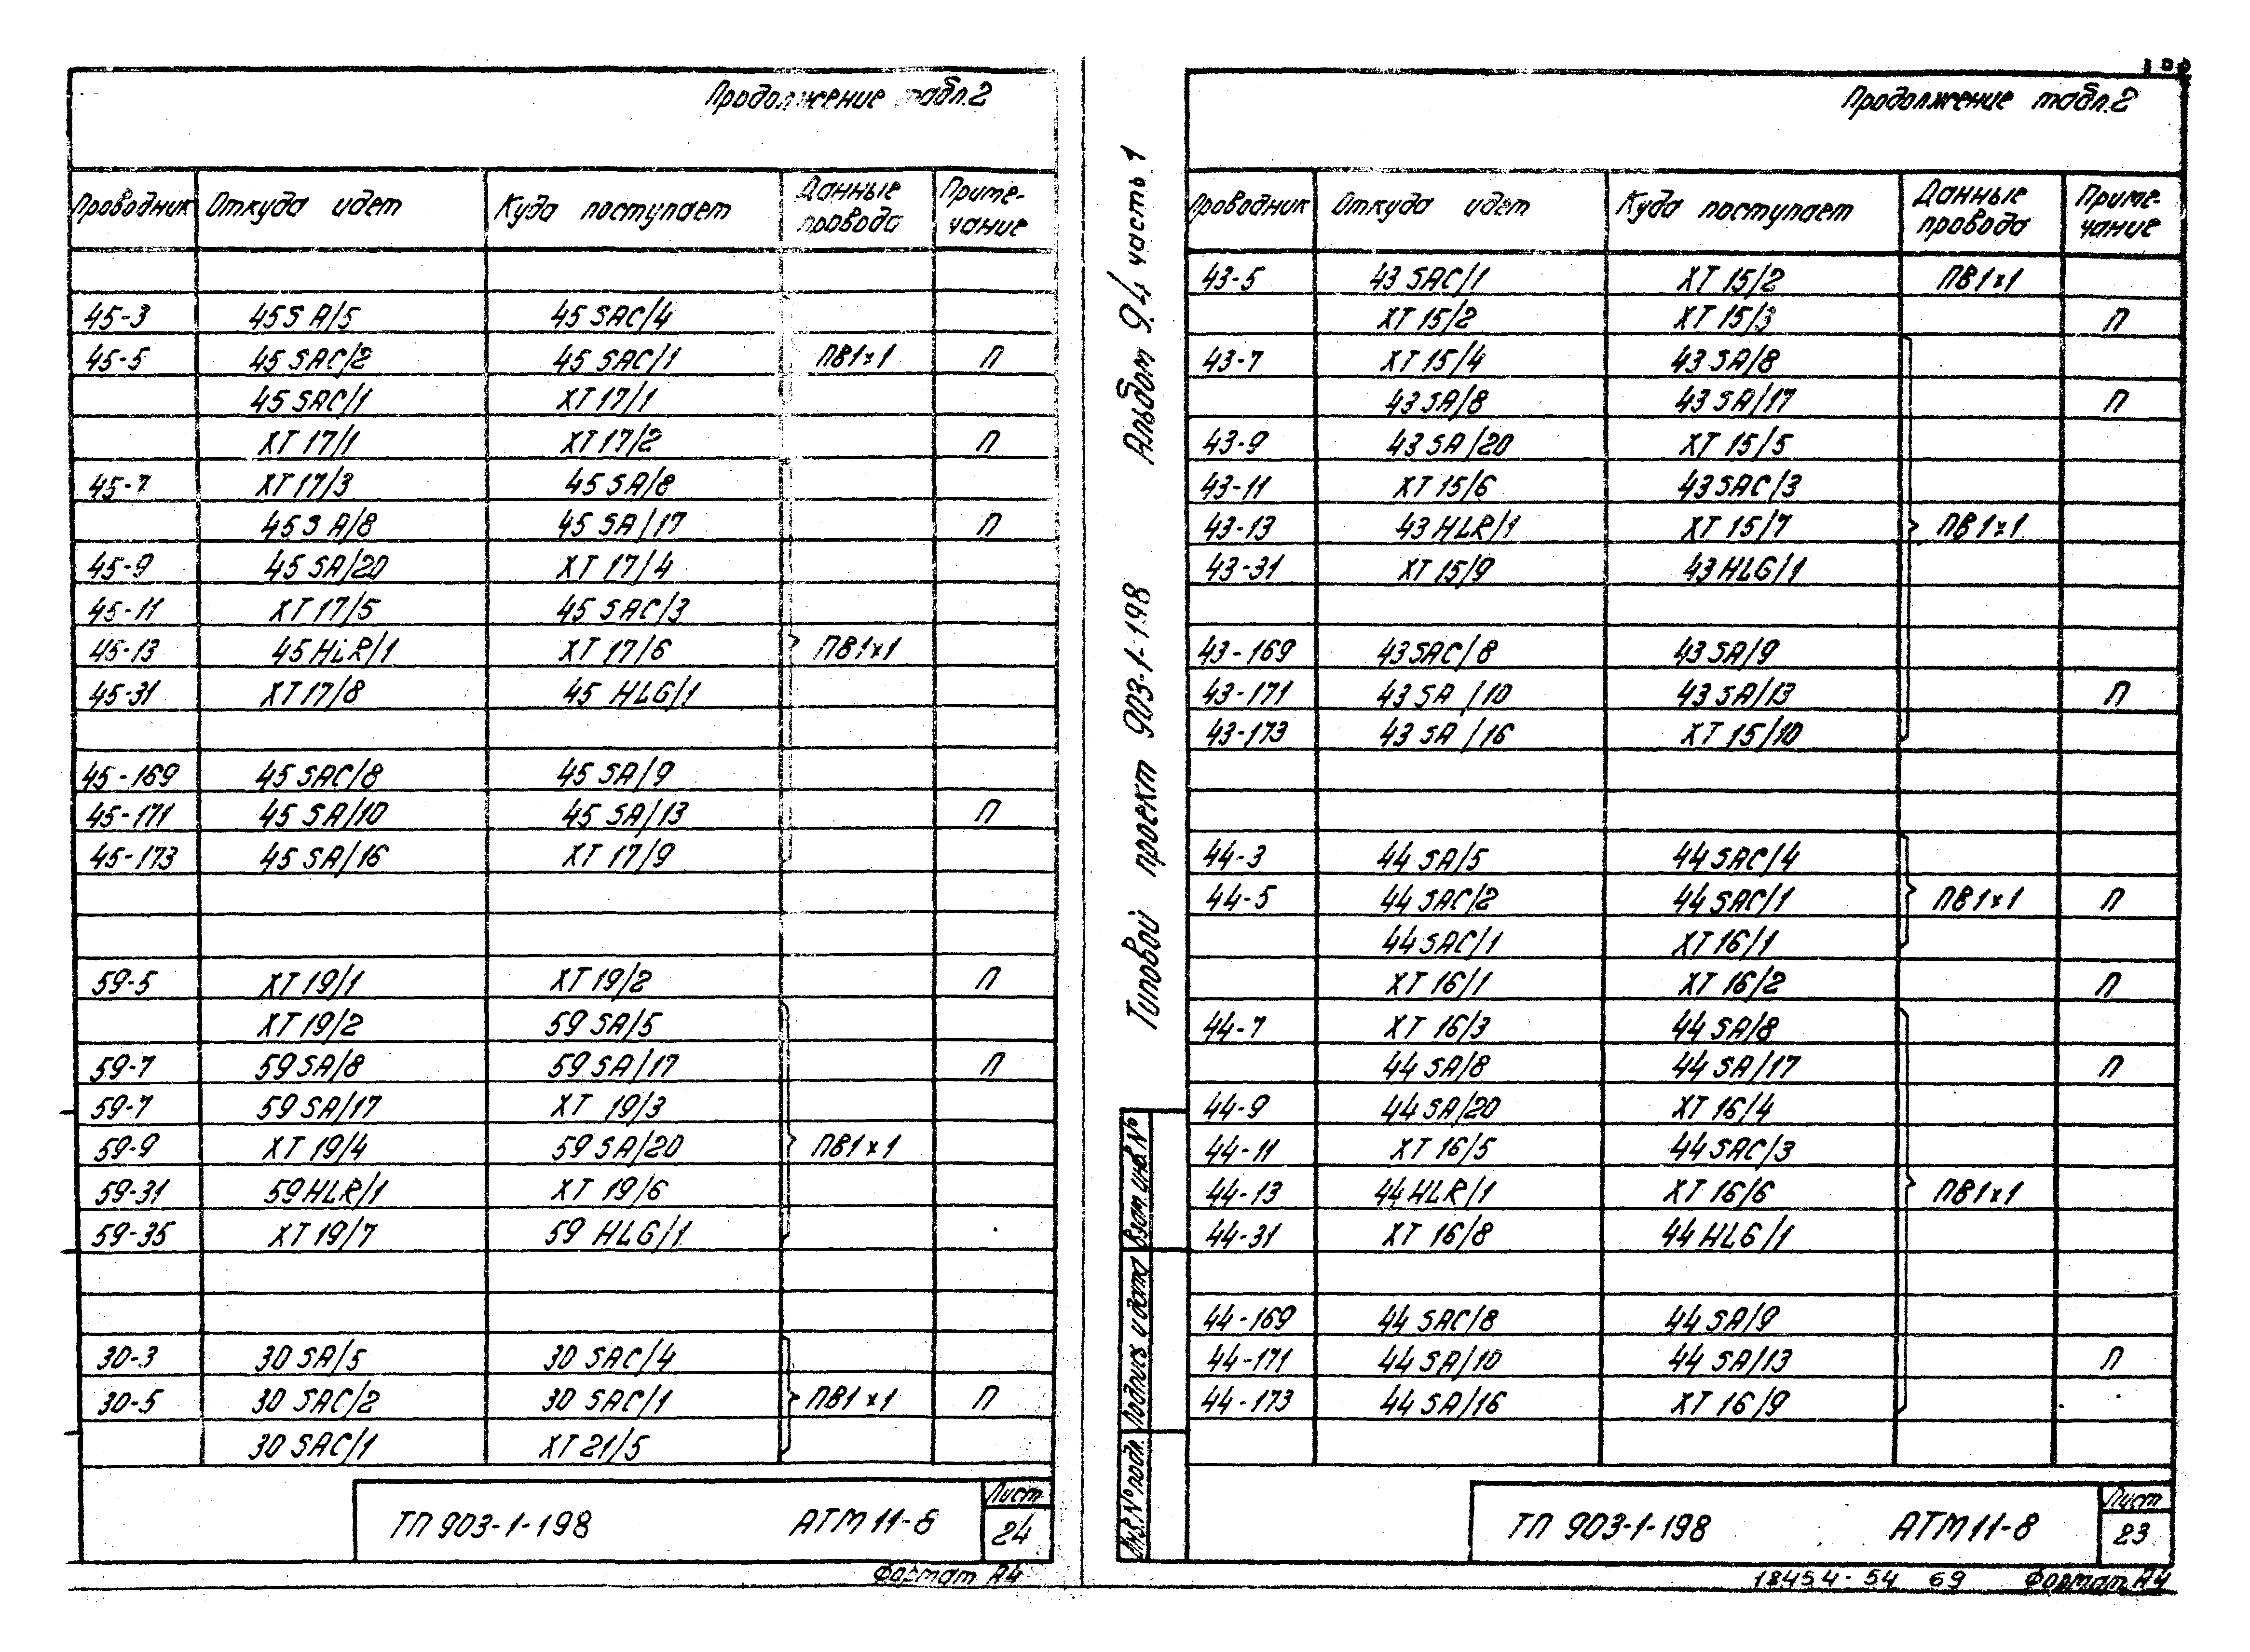 Продолжение табл.2
Проводник Откуда идет Куда поступает Данные провода Примечание
45-3 45SA/5 45SAC/4
45-5 45SAC/2 45SAC/1 ПВ1×1 П
45SAC/1 XT17/1
XT17/1 XT17/2 П
45-7 XT17/3 45SA/8
45SA/8 45SA/17 П
45-9 45SA/20 XT17/4
45-11 XT17/5 45SAC/3
45-13 45HLR/1 XT17/6 ПВ1×1
45-31 XT17/8 45HLG/1
45-169 45SAC/8 45SA/9
45-171 45SA/10 45SA/13 П
45-173 45SA/16 XT17/9
59-5 XT19/1 XT19/2 П
XT19/2 59SA/5
59-7 59SA/8 59SA/17 П
59-7 59SA/17 XT19/3
59-9 XT19/4 59SA/20 ПВ1×1
59-31 59HLR/1 XT19/6
59-35 XT19/7 59HLG/1
30-3 30SA/5 30SAC/4
30-5 30SAC/2 30SAC/1 ПВ1×1 П
30SAC/1 XT21/5
ТП 903-1-198 АТМ11-8 Лист 24
Формат А4
Альбом 9.4 часть 1
Типовой проект 903-1-198
Взам.инв.№
Подпись и дата
Инв.№ подл.
Продолжение табл.2
Проводник Откуда идет Куда поступает Данные провода Примечание
43-5 43SAC/1 XT15/2 ПВ1×1
XT15/2 XT15/3 П
43-7 XT15/4 43SA/8
43SA/8 43SA/17 П
43-9 43SA/20 XT15/5
43-11 XT15/6 43SAC/3
43-13 43HLR/1 XT15/7 ПВ1×1
43-31 XT15/9 43HLG/1
43-169 43SAC/8 43SA/9
43-171 43SA/10 43SA/13 П
43-173 43SA/16 XT15/10
44-3 44SA/5 44SAC/4
44-5 44SAC/2 44SAC/1 ПВ1×1 П
44SAC/1 XT16/1
XT16/1 XT16/2 П
44-7 XT16/3 44SA/8
44SA/8 44SA/17 П
44-9 44SA/20 XT16/4
44-11 XT16/5 44SAC/3
44-13 44HLR/1 XT16/6 ПВ1×1
44-31 XT16/8 44HLG/1
44-169 44SAC/8 44SA/9
44-171 44SA/10 44SA/13 П
44-173 44SA/16 XT16/9
ТП 903-1-198 АТМ11-8 Лист 23
18454-54 69 Формат А4